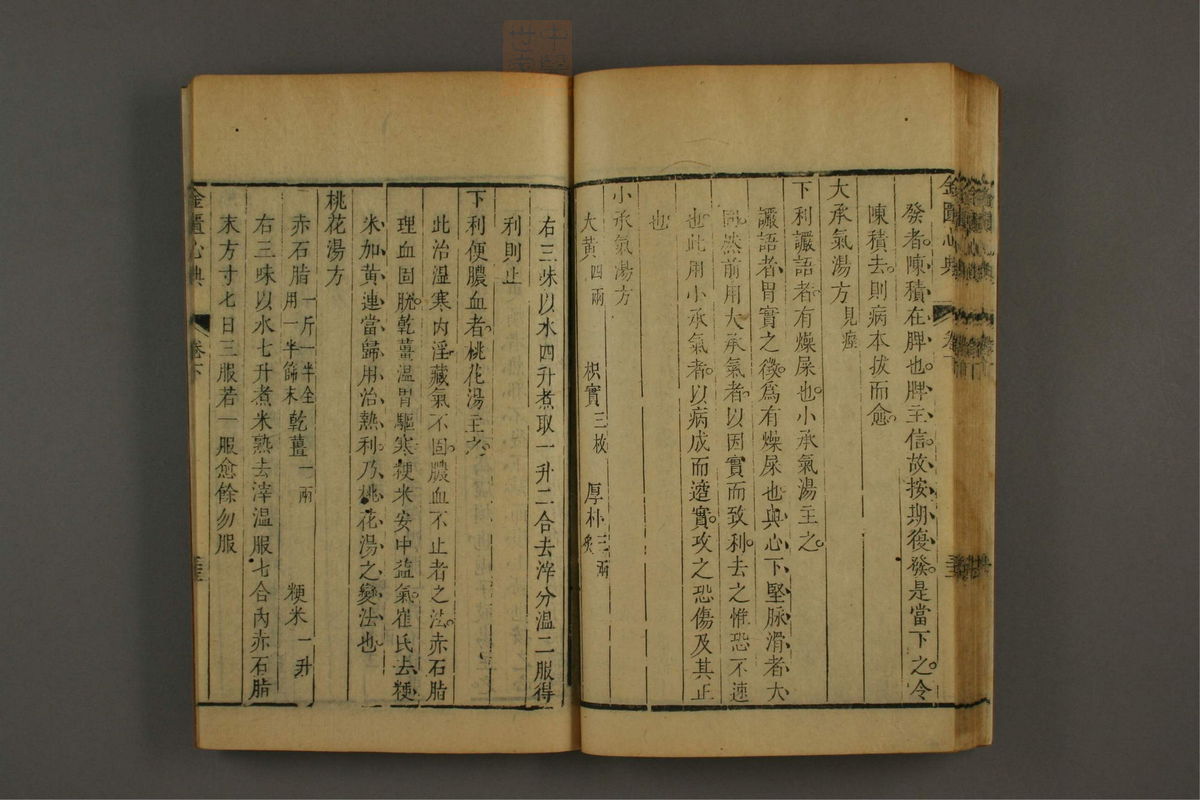 發者陳積在脾也脾主信故按期復發是當下之令
陳積去則病本拔而愈
大承氣湯方 見痙
下利讝語者有燥屎也小承氣湯主之
讝語者胃實之徵爲有燥屎也與心下堅脉滑者大
同然前用大承氣者以因實而致利去之惟恐不速
也此用小承氣者以病成而適實攻之恐傷及其正
也
小承氣湯方
大黃四兩 枳實三枚 厚朴三兩炙
右三味以水四升煮取一升二合去滓分溫二服得
利則止
下利便膿血者桃花湯主之
此治溼寒內淫藏氣不固膿血不止者之法赤石脂
理血固脫乾薑溫胃驅寒粳米安中益氣崔氏去粳
米加黃連當歸用治熱利乃桃花湯之變法也
桃花湯方
赤石脂一斤一半全用一半篩末 乾薑一兩 粳米一升
右三味以水七升煮米熟去滓溫服七合內赤石脂
末方寸七日三服若一服愈餘勿服
金匱心典 卷下